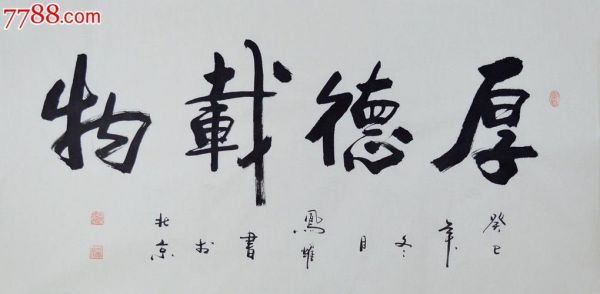 7788.com
厚德載物
癸巳年冬月鳳書於北京